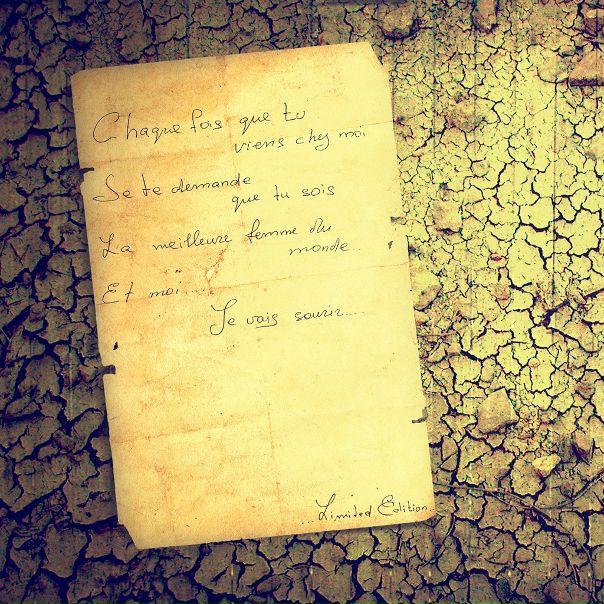 Chaque fois que tu
viens chez moi
Je te demande
que tu sois
La meilleure femme du
monde...
Et moi....
Je vais sourir....
...Limited Edition..